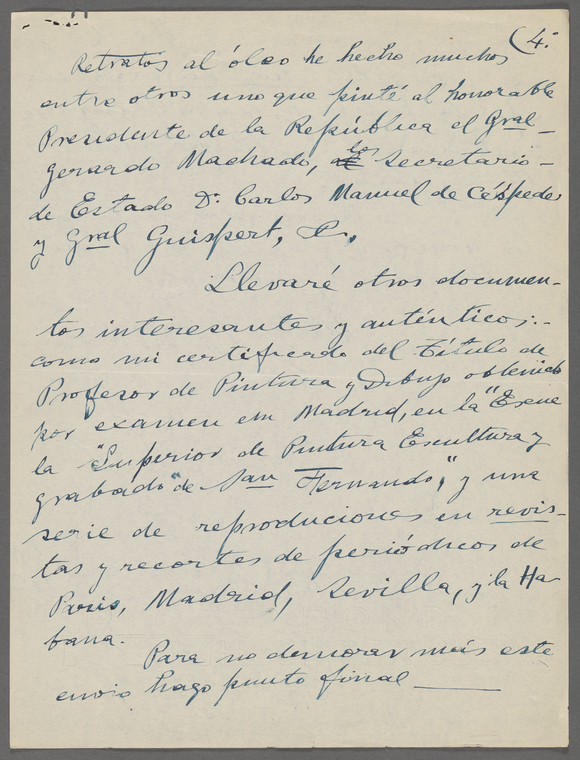 (4.
Retratos al óleo he hecho muchos
entre otros uno que pinté al honorable
Presidente de la República el Gral-
Gerardo Machado, los Secretario-
de Estado Dr. Carlos Manuel de Céspedes
y Gral Guispert,
Llevaré otros documen-
tos interesantes y auténticos:-
como mi certificado del Título de
Profesor de Pintura y Dibujo obtenido
por examen em Madrid, en la "Escue
la "Superior de Pintura Escultura y
grabado" de San Fernando," y una
serie de reproduciones en revis-
tas y recortes de periódicos de
Paris, Madrid, Sevilla, y la Ha-
bana.
Para no demorar más este
envio hago punto final